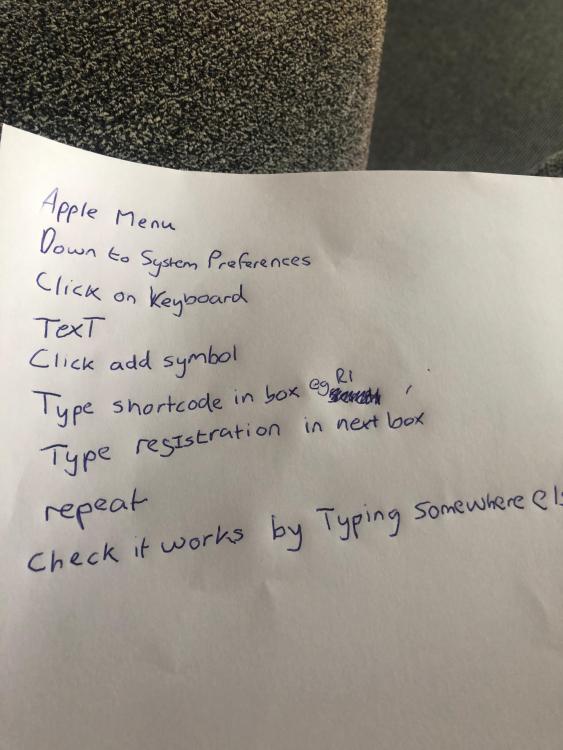 Apple Menu
Down to System Preferences
Click on Keyboard
Text
Click add symbol
Type shortcode in box eg R1
Type regIstration in next box
repeat
Check it works by Typing Somewhere els